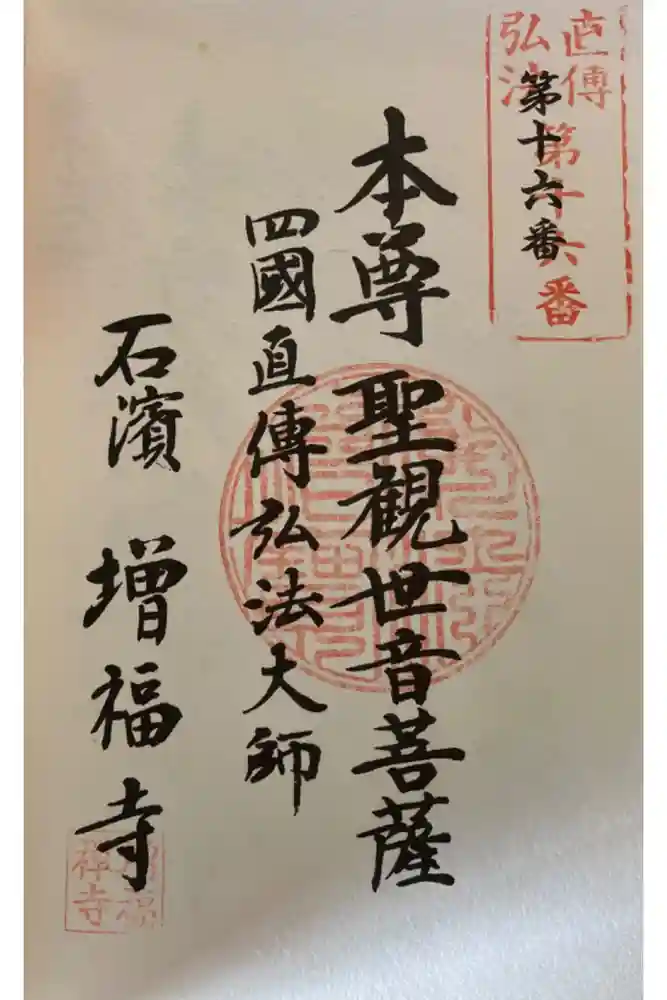 直傳
弘法
第十六番
第十六番
本尊 聖観世音菩薩
四國直傳弘法大師
石濱 増福寺
増福
禅寺